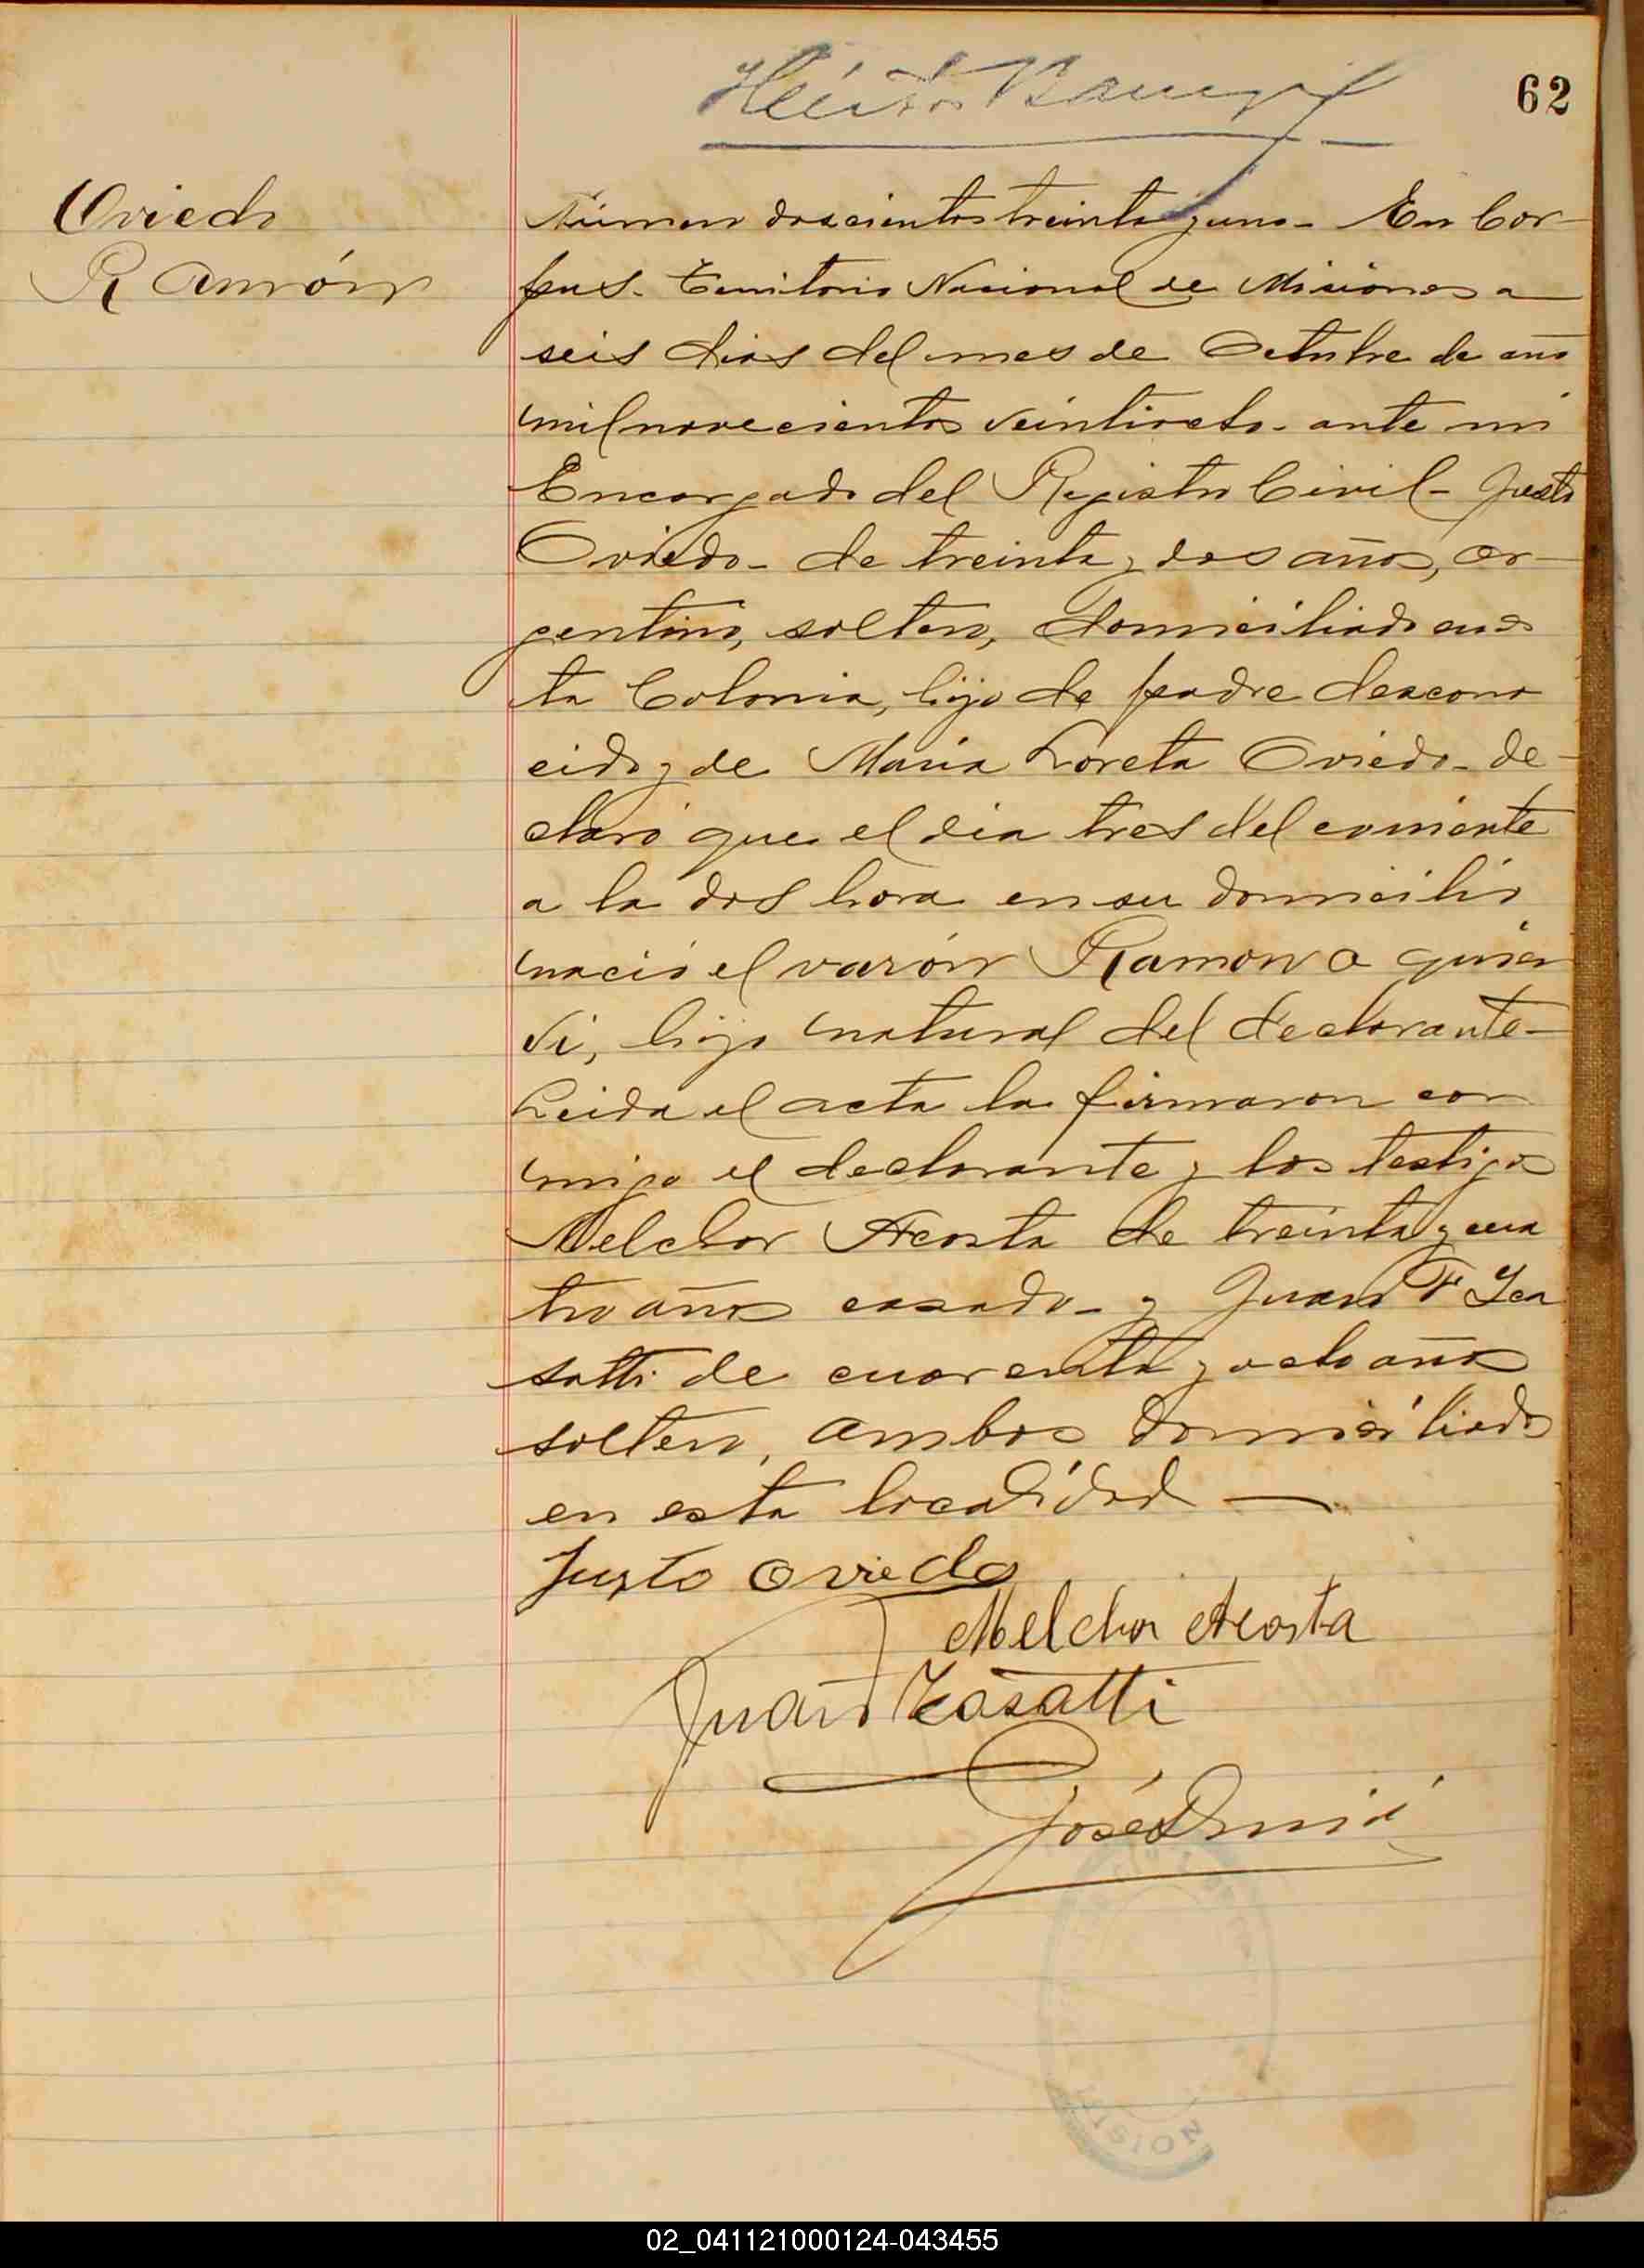 62
Oviedo
Ramón
Número doscientos treinta y uno - En Cor-
pus - Territorio Nacional de Misiones a
seis dias del mes de Octubre de año
mil novecientos veintiocho - ante mi
Encargado del Registro Civil - Justo
Oviedo - de treinta y dos años, ar-
gentino, soltero, domiciliado en es
ta Colonia, hijo de padre descono
cido y de Maria Loreta Oviedo - de-
claró que el dia tres del corriente
a la dos hora en su domicilio
nació el varón Ramon a quien
vi, hijo natural del declarante -
Leida el acta la firmaron con
migo el declarante y los testigos
Melchor Acosta de treinta y cua
tro años casado - y Juan F
satti de cuarenta y ocho años
soltero, ambos domiciliados
en esta localidad —
Justo Oviedo
Melchor Acosta
Juan
José
MISION
02_041121000124-043455